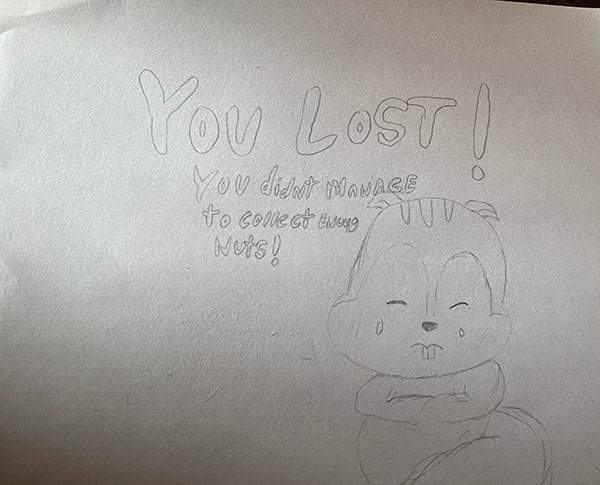 YOU LOST!
YOU didnt MANAGE
to collect Enoug
Nuts!